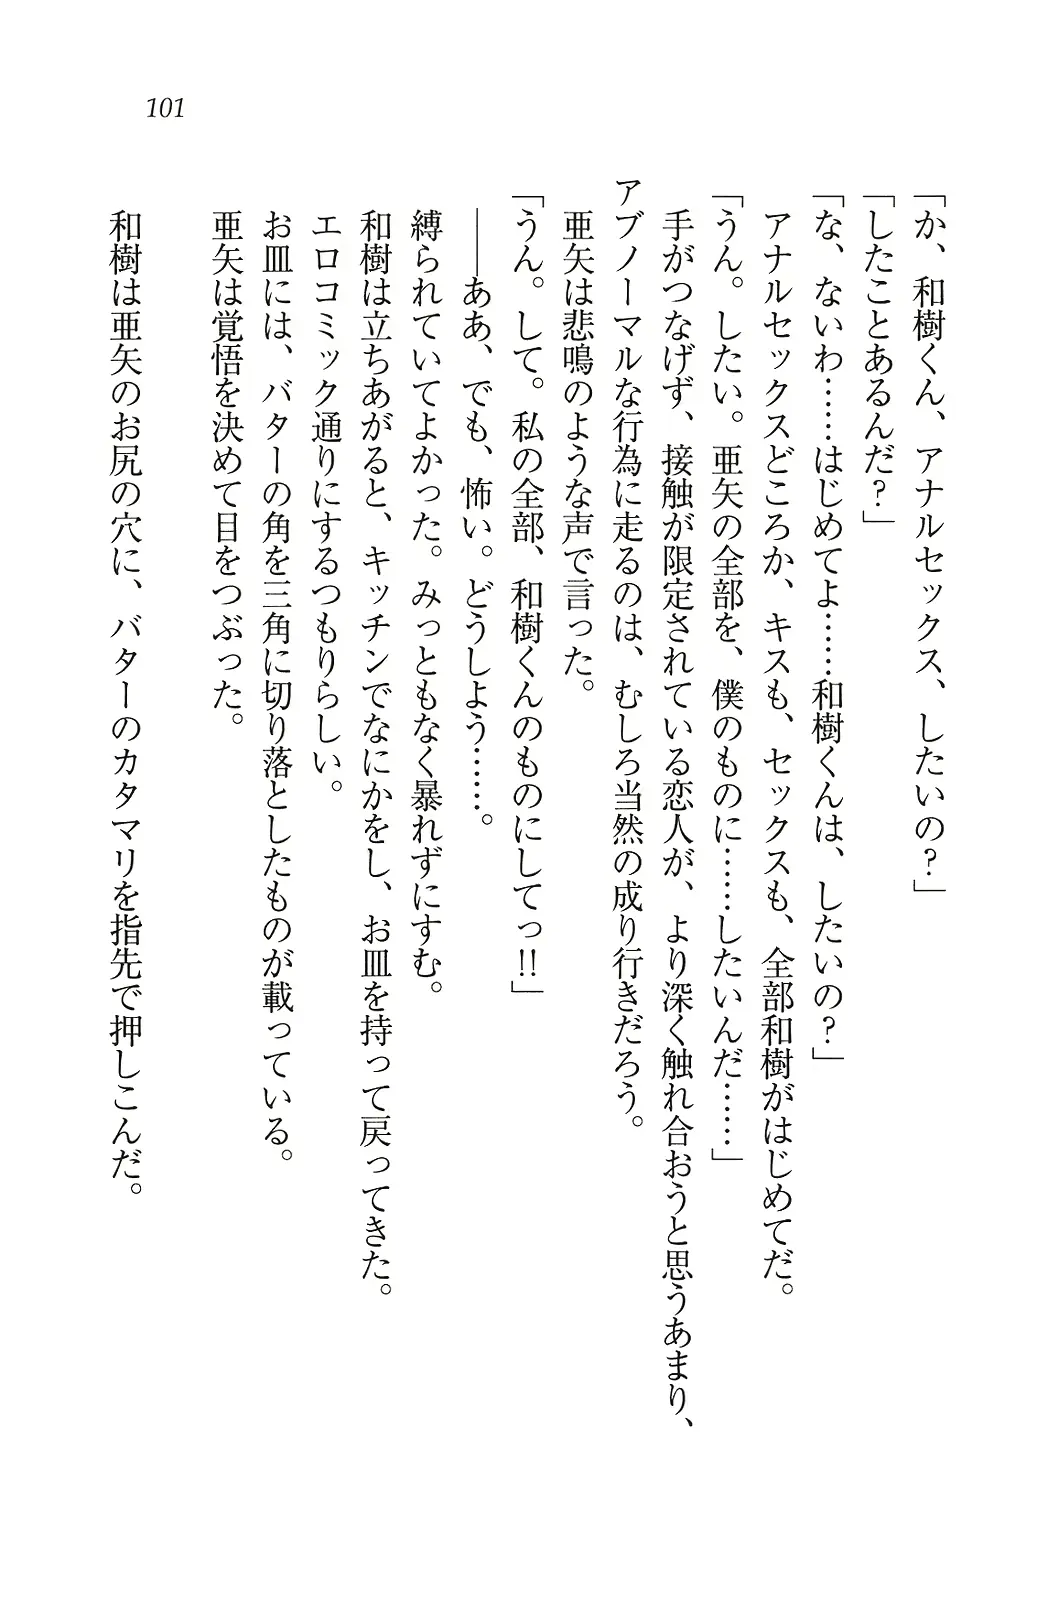 101
「か、和樹くん、アナルセックス、したいの？」
「したことあるんだ？」
「な、ないわ……はじめてよ……和樹くんは、したいの？」
アナルセックスどころか、キスも、セックスも、全部和樹がはじめてだ。
「うん。したい。亜矢の全部を、僕のものに……したいんだ……」
手がつなげず、接触が限定されている恋人が、より深く触れ合おうと思うあまり、
アブノーマルな行為に走るのは、むしろ当然の成り行きだろう。
亜矢は悲鳴のような声で言った。
「うん。して。私の全部、和樹くんのものにしてっ!!」
――ああ、でも、怖い。どうしよう……。
縛られていてよかった。みっともなく暴れずにすむ。
和樹は立ちあがると、キッチンでなにかをし、お皿を持って戻ってきた。
エロコミック通りにするつもりらしい。
お皿には、バターの角を三角に切り落としたものが載っている。
亜矢は覚悟を決めて目をつぶった。
和樹は亜矢のお尻の穴に、バターのカタマリを指先で押しこんだ。